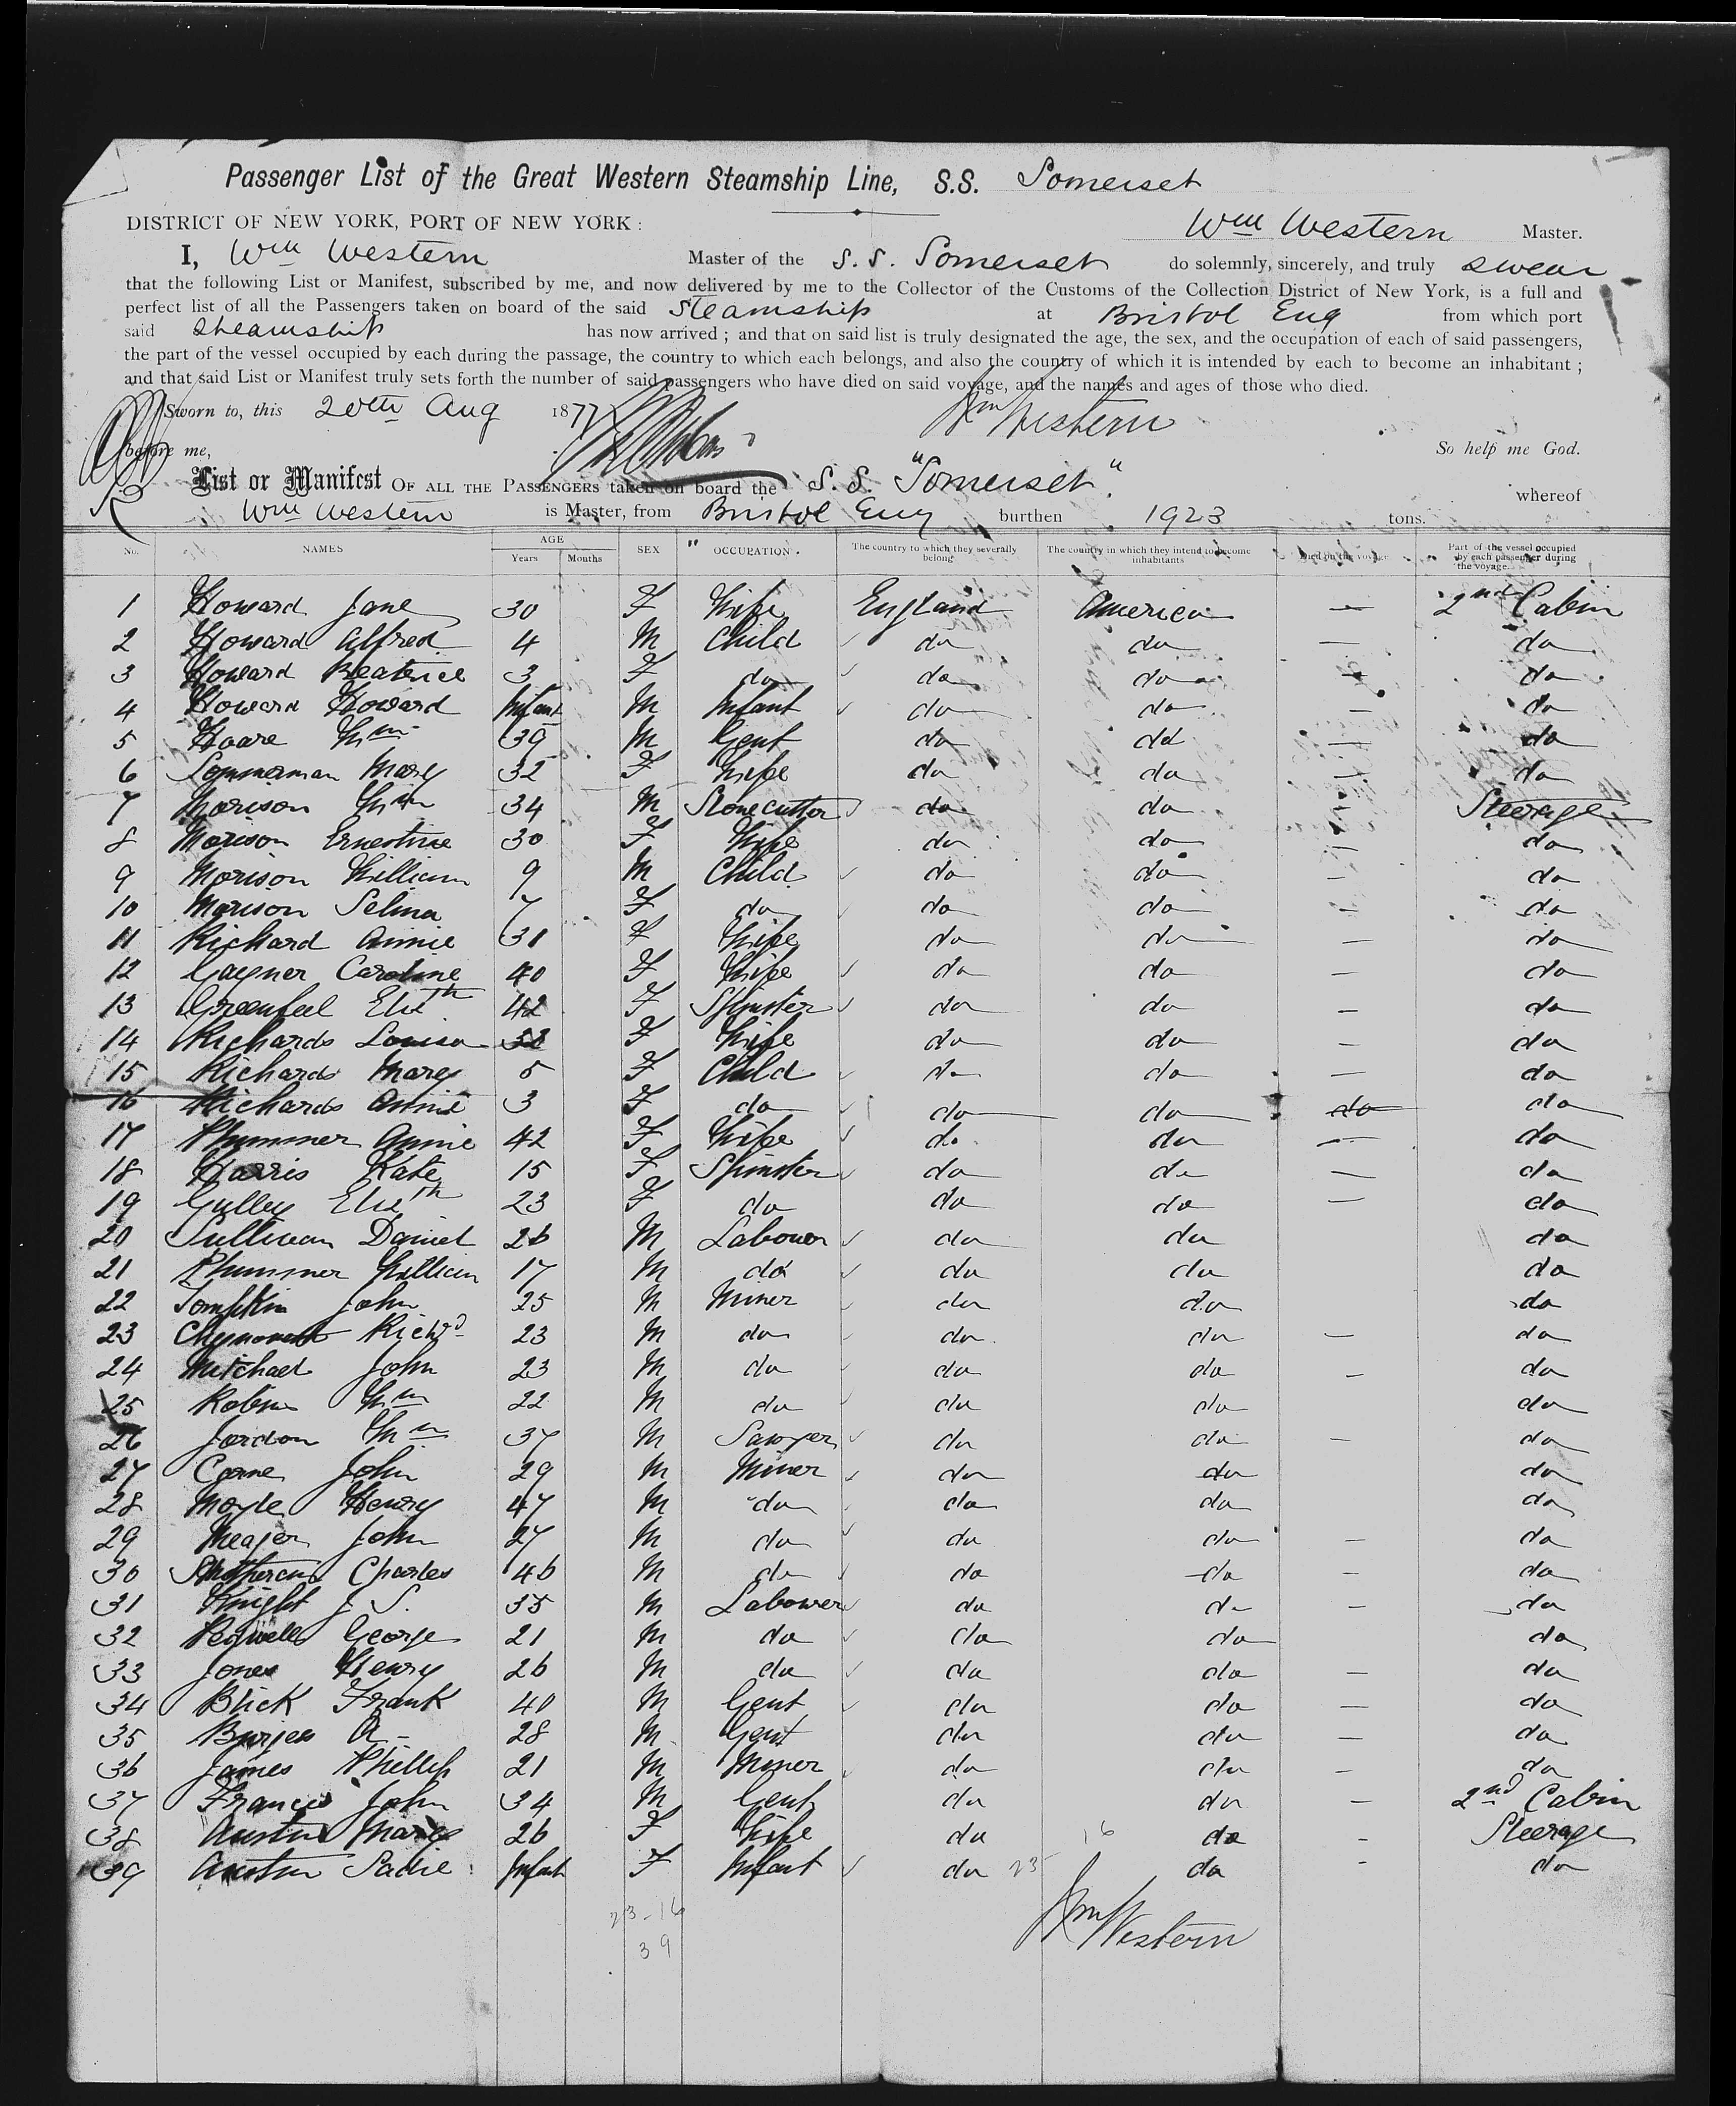 Passenger List of the Great Western Steamship Line, S.S. Somerset
DISTRICT OF NEW YORK, PORT OF NEW YORK: Wm Western Master.
I, Wm Western Master of the S.S. Somerset do solemnly, sincerely, and truly swear
that the following List or Manifest, subscribed by me, and now delivered by me to the Collector of the Customs of the Collection District of New York, is a full and
perfect list of all the Passengers taken on board of the said Steamship at Bristol Eng from which port
said Steamship has now arrived; and that on said list is truly designated the age, the sex, and the occupation of each of said passengers,
the part of the vessel occupied by each during the passage, the country to which each belongs, and also the country of which it is intended by each to become an inhabitant;
and that said List or Manifest truly sets forth the number of said passengers who have died on said voyage, and the names and ages of those who died.
Sworn to, this 20th Aug 1877 Wm Western
before me, So help me God.
List or Manifest OF ALL THE PASSENGERS taken on board the S.S. "Somerset" whereof
Wm Western is Master, from Bristol Eng burthen 1923 tons.
No. NAMES AGE Years Months SEX OCCUPATION. The country to which they severally belong The country in which they intend to become inhabitants Died on the voyage Part of the vessel occupied by each passenger during the voyage.
1 Howard Jane 30 F Wife England America — 2nd Cabin
2 Howard Alfred 4 M Child do do — do
3 Howard Beatrice 3 F do do do — do
4 Howard Howard Infant M Infant do do — do
5 Hoare Wm 39 M Gent do do — do
6 Sommerman Mary 32 F Wife do do — do
7 Morison Wm 34 M Stonecutter do do — Steerage
8 Morison Ernestine 30 F Wife do do — do
9 Morison William 9 M Child do do — do
10 Morison Selina 7 F do do do — do
11 Richard Annie 31 F Wife do do — do
12 Gayner Caroline 40 F Wife do do — do
13 Greenfeel Elizth 42 F Spinster do do — do
14 Richards Louisa F Wife do do — do
15 Richards Mary 5 F Child do do — do
16 Richards Annie 3 F do do do do do
17 Plummer Annie 42 F Wife do do — do
18 Harris Kate 15 F Spinster do do — do
19 Gulley Elizth 23 F do do do — do
20 Sullivan Daniel 26 M Labourer do do do
21 Plummer William 17 M do do do do
22 Tompkin John 25 M Miner do do do
23 Richd 23 M do do do — do
24 Mitchael John 23 M do do do — do
25 Robins Wm 22 M do do do do
26 Jordon Wm 37 M Sawyer do do — do
27 Corne John 29 M Miner do do do
28 Moyle Henry 47 M do do do do
29 Meager John 27 M do do do — do
30 Charles 46 M do do do — do
31 Knight J S. 35 M Labourer do do — do
32 George 21 M do do do do
33 Jones Henry 26 M do do do — do
34 Blick Frank 40 M Gent do do — do
35 Burgess A — 28 M Gent do do — do
36 James Phillip 21 M Miner do do — do
37 Francis John 34 M Gent do do — 2nd Cabin
38 Austin Mary 26 F Wife do 16 do - Steerage
39 Austin Sadie Infant F Infant do 23 do - do
23-16
39
Wm Western